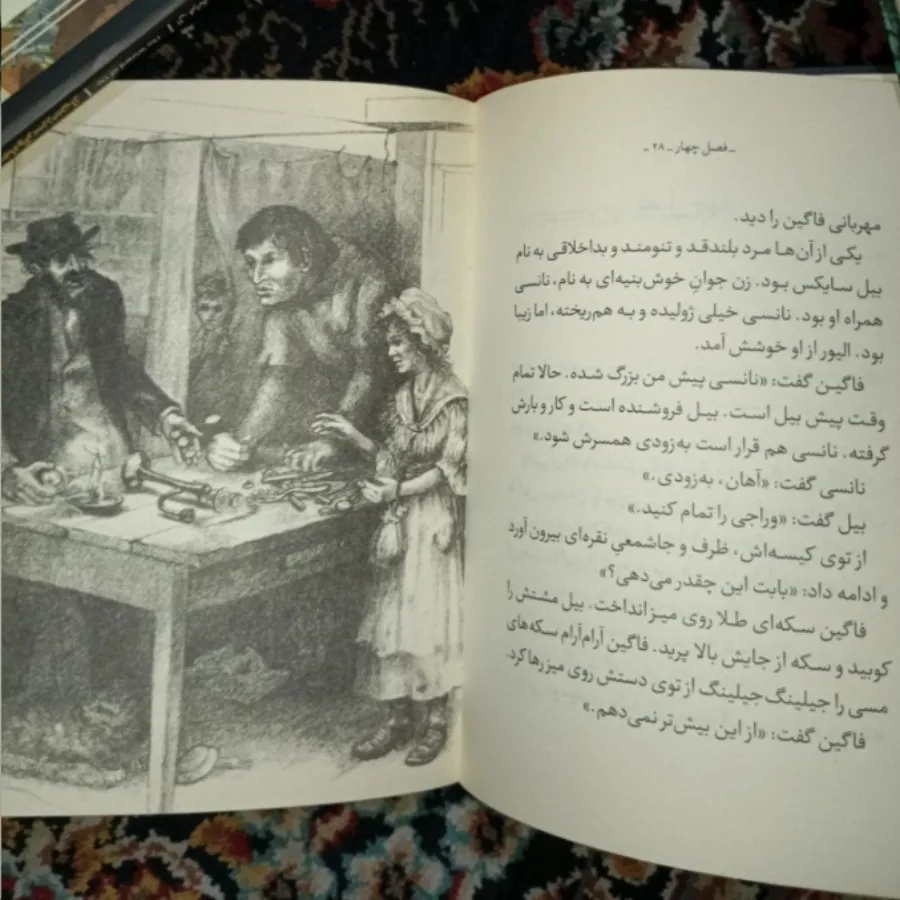 ـ فصل چهار ـ ۲۸ ـ
مهربانی فاگین را دید.
یکی از آن‌ها مرد بلندقد و تنومند و بداخلاقی به نام
بیل سایکس بود. زن جوانِ خوش‌بنیه‌ای به نام، نانسی
همراه او بود. نانسی خیلی ژولیده و به هم‌ریخته، اما زیبا
بود. الیور از او خوشش آمد.
فاگین گفت: «نانسی پیش من بزرگ شده. حالا تمام
وقت پیش بیل است. بیل فروشنده است و کار و بارش
گرفته. نانسی هم قرار است به‌زودی همسرش شود.»
نانسی گفت: «آهان، به‌زودی.»
بیل گفت: «وراجی را تمام کنید.»
از توی کیسه‌اش، ظرف و جاشمعیِ نقره‌ای بیرون آورد
و ادامه داد: «بابت این چقدر می‌دهی؟»
فاگین سکه‌ای طلا روی میز انداخت. بیل مشتش را
کوبید و سکه از جایش بالا پرید. فاگین آرام‌آرام سکه‌های
مسی را جیلینگ‌جیلینگ از توی دستش روی میز رها کرد.
فاگین گفت: «از این بیش‌تر نمی‌دهم.»